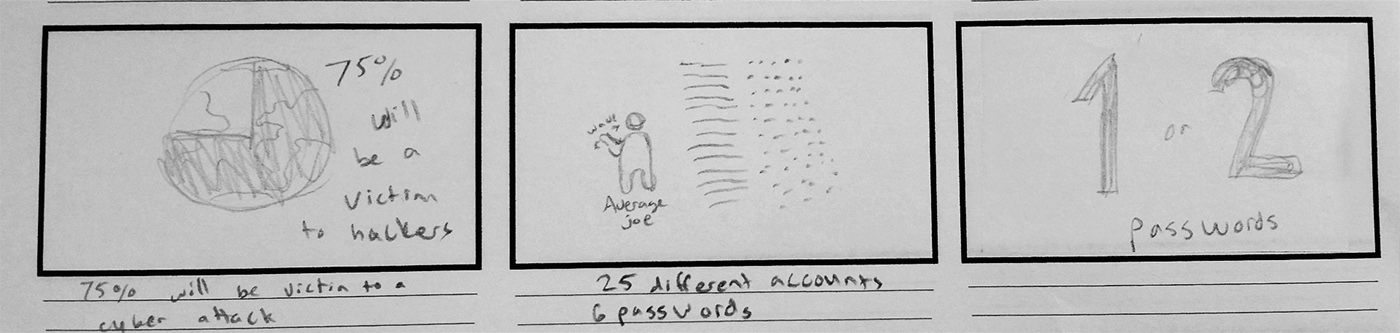 75%
will
be a
victim
to hackers
75% will be victim to a
cyber attack
wave
Average
joe
25 different accounts
6 passwords
1 or 2
passwords